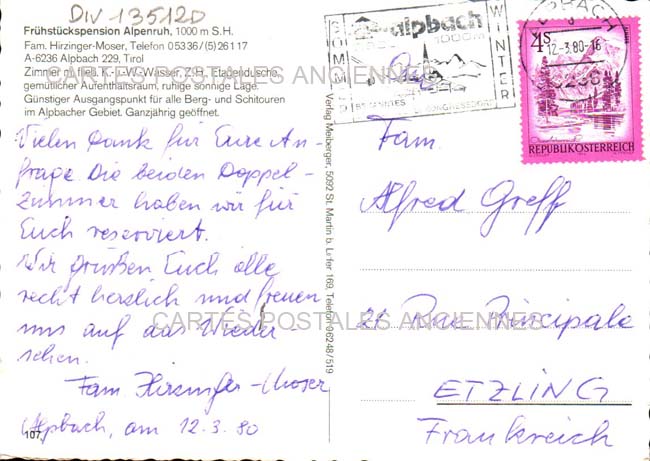 Div 135120
Frühstückspension Alpenruh, 1000 m S.H.
Fam. Hirzinger-Moser, Telefon 05336/(5)26117
A-6236 Alpbach 229, Tirol
Zimmer m. fließ. K.- u. W.-Wasser, Z.H., Etagendusche,
gemütlicher Aufenthaltsraum, ruhige sonnige Lage.
Günstiger Ausgangspunkt für alle Berg- und Schitouren
im Alpbacher Gebiet. Ganzjährig geöffnet.
Vielen Dank für Eure An-
frage. Die beiden Doppel-
zimmer haben wir für
Euch reserviert.
Wir grüßen Euch alle
recht herzlich und freuen
uns auf das Wieder
sehen.
Fam Hirzinger-Moser
Alpbach, am 12.3.80
107
Verlag Meiberger, 5092 St. Martin b. Lofer 169, Telefon 06248/519
SOMMER
alpbach
1000m
WINTER
BEKANNTES
KONGRESSDORF
ALPBACH
12.-3.80-16
6236
4S
REPUBLIK ÖSTERREICH
Fam.
Alfred Greff
21 Rue Principale
ETZLING
Frankreich
CARTES POSTALES ANCIENNES
CARTES POSTALES ANCIENNES